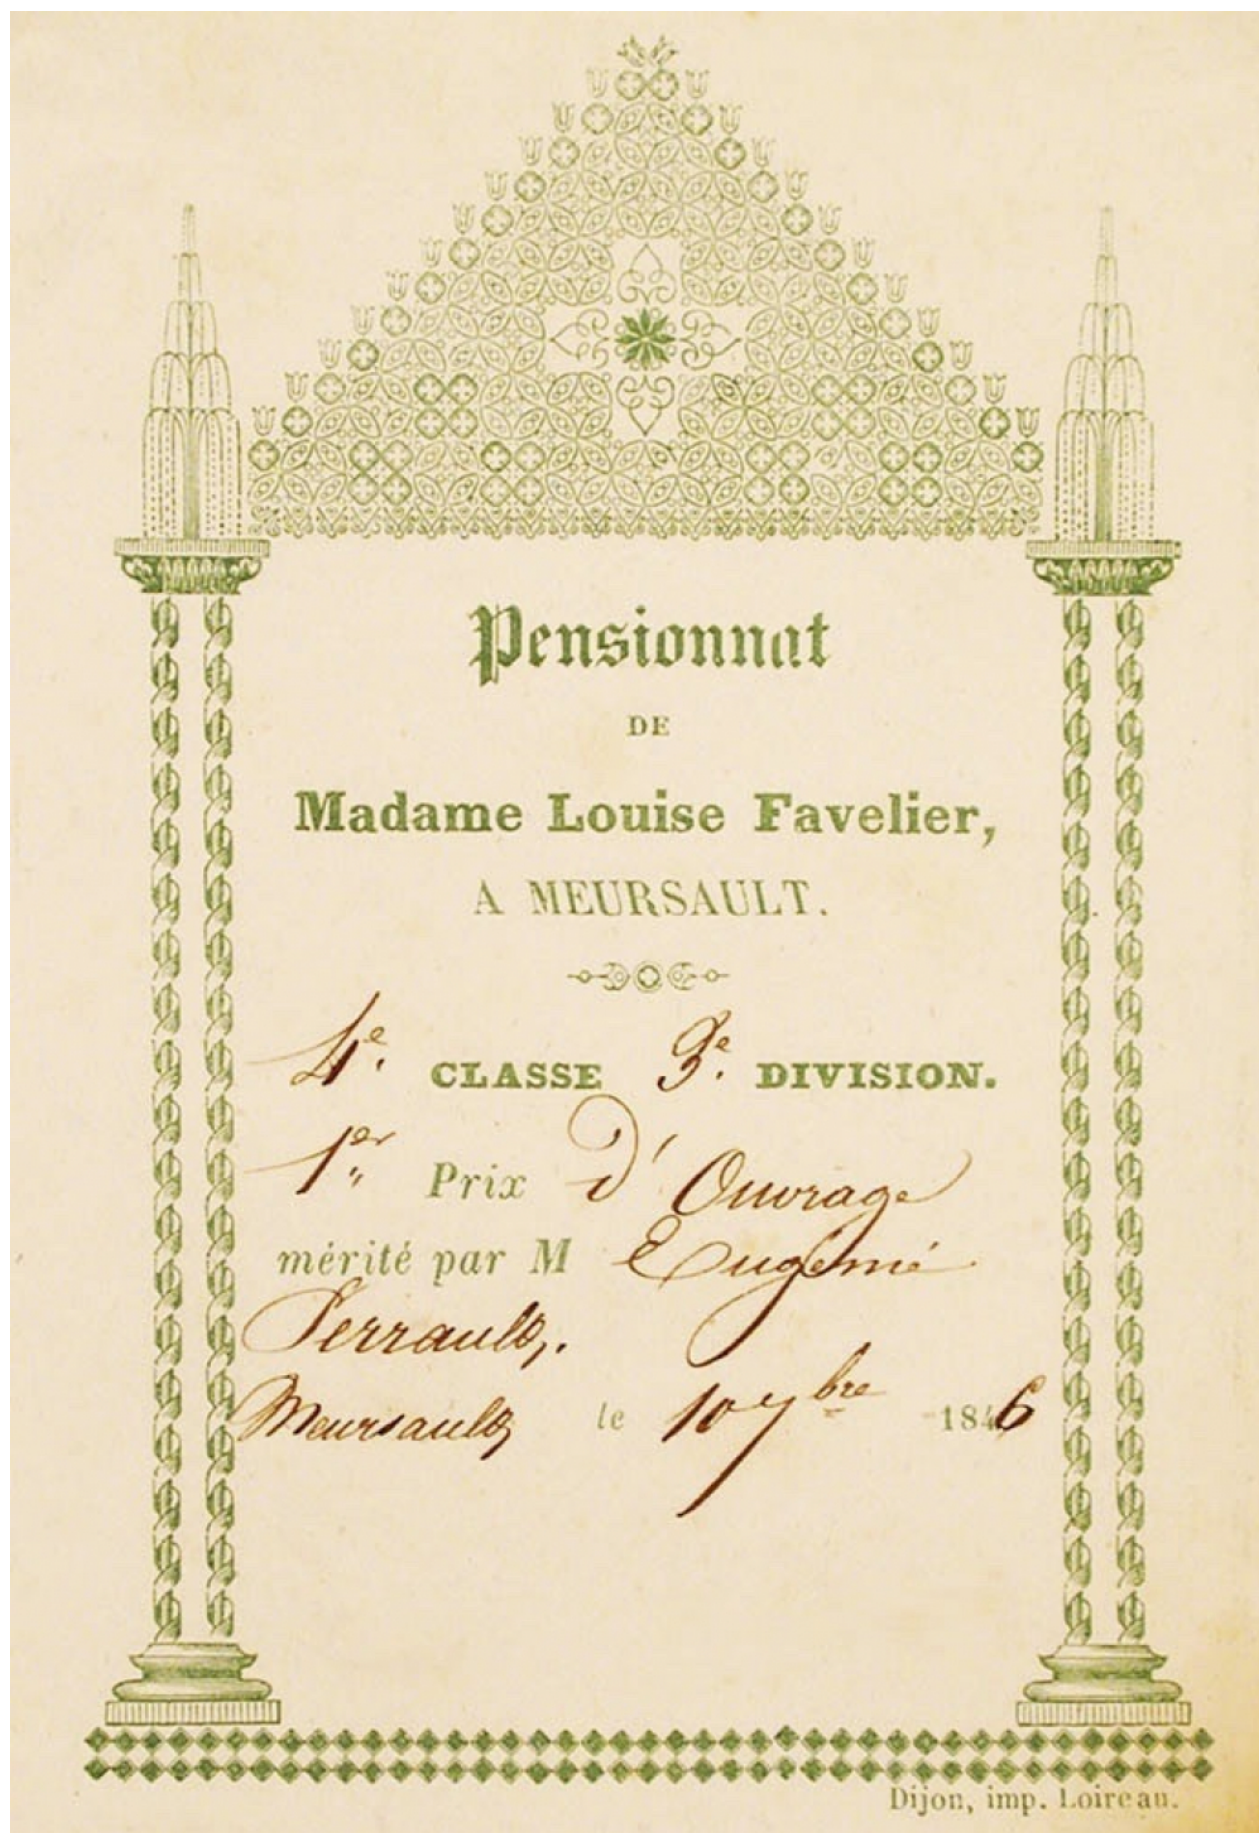 Pensionnat
DE
Madame Louise Favelier,
A MEURSAULT.
4e. CLASSE 3e. DIVISION.
1er Prix d'Ouvrage
mérité par M Eugénie
Perrault,.
Meursault le 10 7bre 1846
Dijon, imp. Loireau.